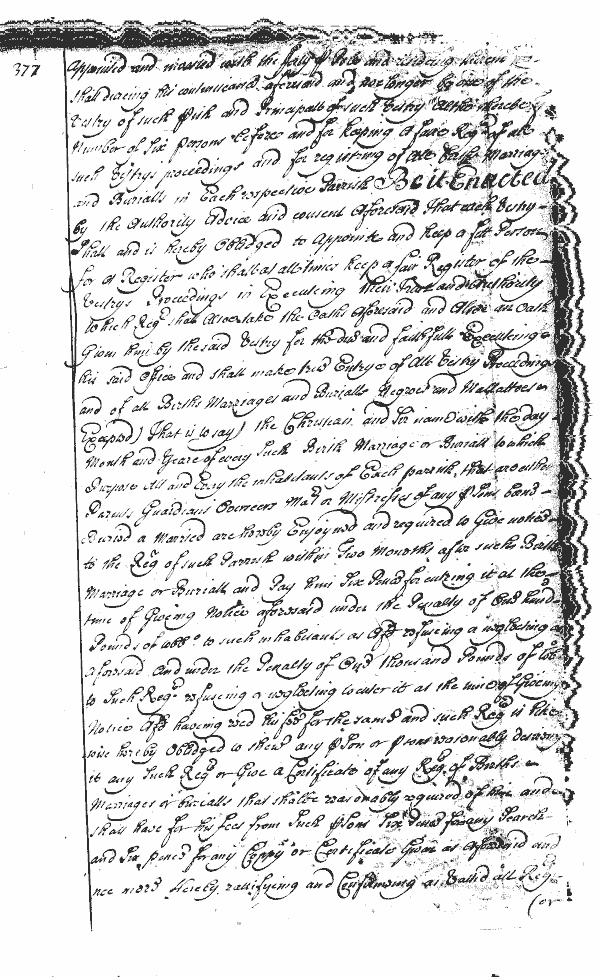 377
Appointed and vested with the full and
shall during his continuance aforesaid and no longer be one of the
Vestry of such and Principall of such Vestry altho thereby
Number of Six Persons before and for keeping a faire Regr of all
such Vestrys proceedings and for registring of all Marriages
and Burialls in Each respective Parrish Be it Enacted
by the Authority Advice and consent aforesaid That each Vestry
Shall and is hereby Obliged to Appointe and keep a fitt Person
for a Register who shall at all times keep a fair Register of the
Vestrys Proceedings in Executeing their and Authority
which Regr shall the Oaths aforesaid and Also an Oath
Given him by the said Vestry for the due and faithfull Executeing
his said Office and shall make true Entrye of All Vestry Proceedings
and of all Births Marriages and Burialls Negroes and Mallattoes
Excepted) That is to say) the Christian and Sir name with the day
Month and Yeare of every Such Birth Marriage or Buriall to which
Purpose All and Every the inhabitants of Each parrish, that are either
Parents Guardians Overseers or Mistresses of any
Buried a Married are hereby Enjoyned and required to Give notice
to the Regr of such Parrish within Two Months after such Birth
Marriage or Buriall and Pay him Six Pence for entring it at the
time of Giveing Notice aforesaid under the Penalty of
Pounds of tobbo to such inhabitants as Afd refuseing a neglecting
aforesaid And under the Penalty of thousand Pounds of tob
to Such Regr refuseing a neglecting to enter it at the time of Giveing
Notice Afd having red his fee for the same and such Regr is like
wise hereby Obliged to shew any or reasonably desireing
it any Such Regr or Give a Certificate of any Reg. of Births
Marriages or burialls that shalbe reasonably required of him and
shall have for his fees from Such Six Pence for any Search
and Six pence for any Coppy or Certificate Given as Aforesaid and
noe more Hereby rattifyeing and Confirming as Vallid all Regrs
(or